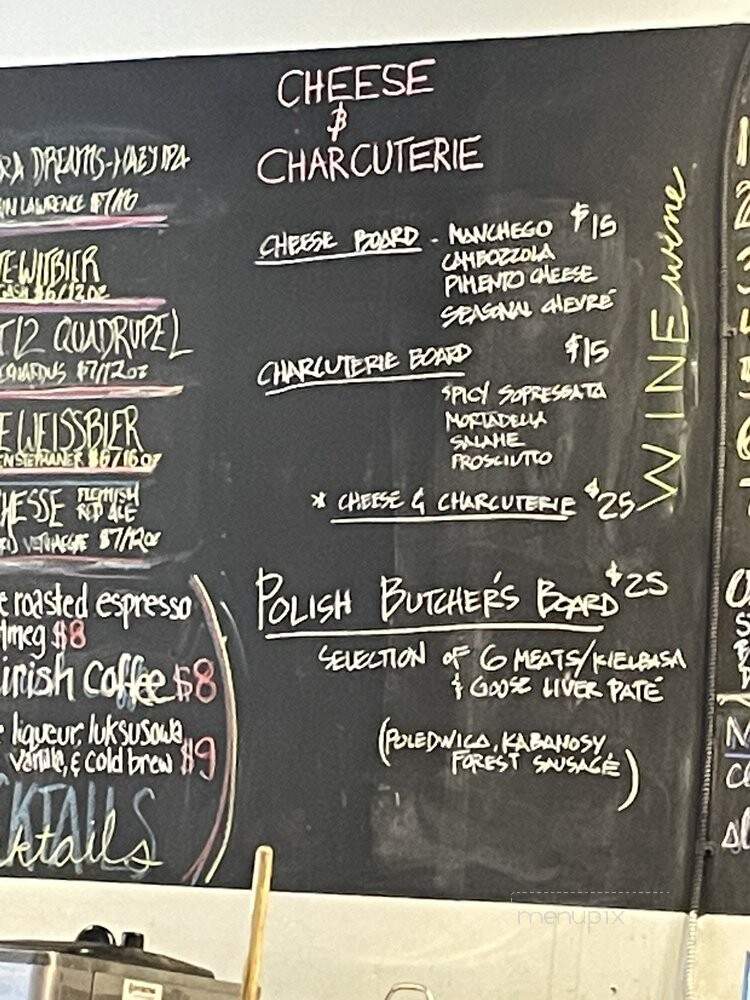 CHEESE
&
CHARCUTERIE
CHEESE BOARD - MANCHEGO $15
CAMBOZZOLA
PIMENTO CHEESE
SEASONAL CHEVRÉ
CHARCUTERIE BOARD $15
SPICY SOPRESSATA
MORTADELLA
SALAME
PROSCIUTTO
* CHEESE & CHARCUTERIE $25
POLISH BUTCHER'S BOARD $25
SELECTION OF 6 MEATS/KIELBASA
& GOOSE LIVER PATÉ
(POLEDWICA, KABANOSY,
FOREST SAUSAGE)
WINE wine
RA DREAMS-HAZY IPA
IN LAWRENCE $7/16
EWITBIER
$6/12oz
T 12 QUADRUPEL
$7/12oz
EWEISSBIER
$6/16oz
HESSE FLEMISH
RED ALE
$7/12oz
e roasted espresso
tmeg $8
irish coffee $8
liqueur, luksusowa,
vanilla, & cold brew $9
CKTAILS
ktails
menupix